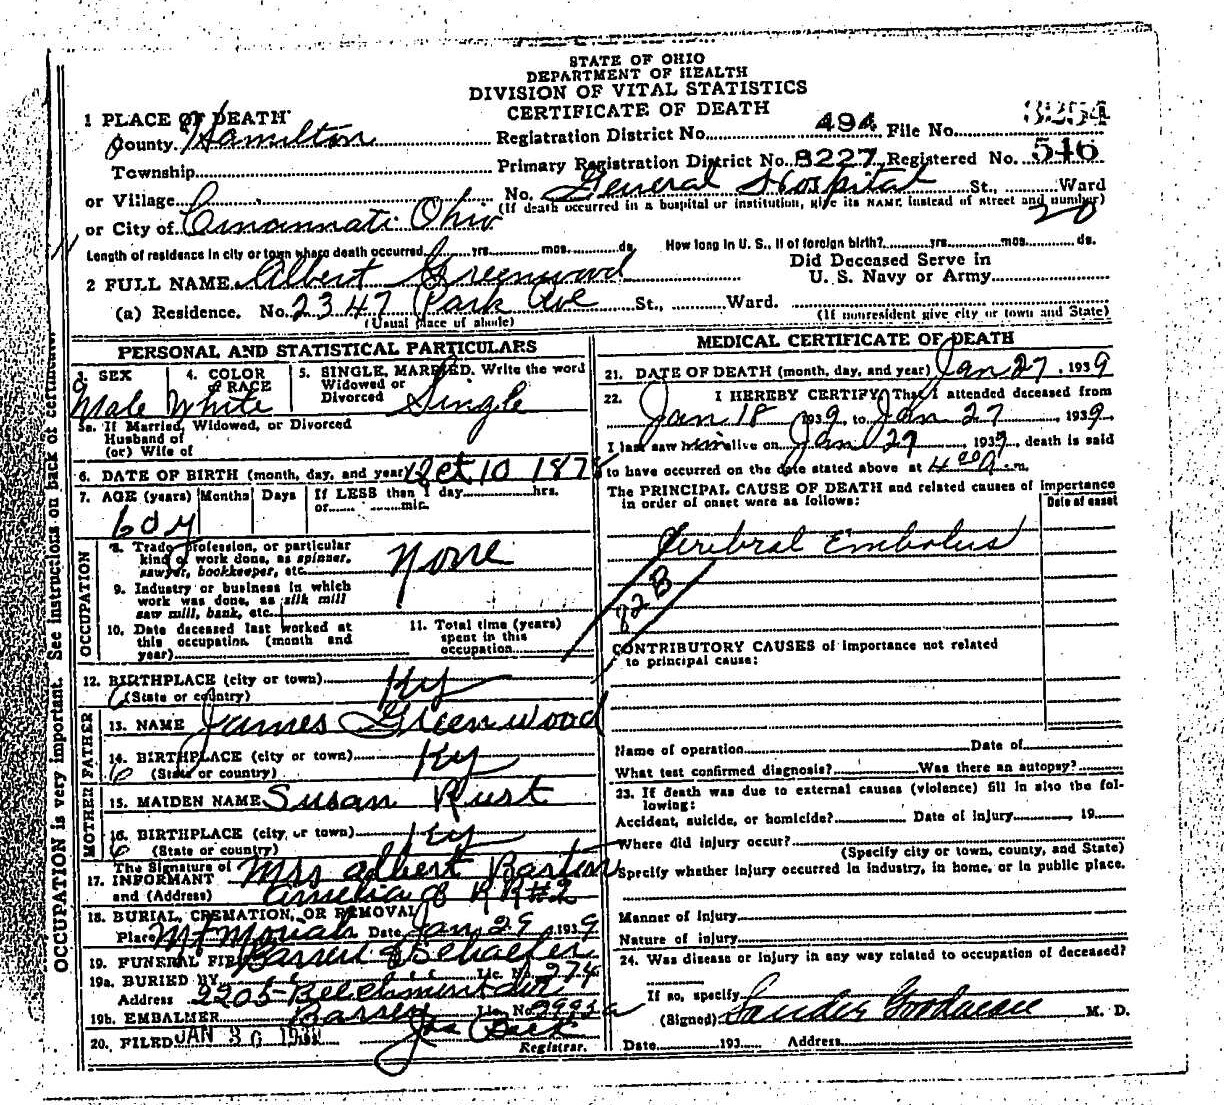 STATE OF OHIO
DEPARTMENT OF HEALTH
DIVISION OF VITAL STATISTICS
CERTIFICATE OF DEATH
1 PLACE OF DEATH
County Hamilton Registration District No. 494 File No. 3254
Township Primary Registration District No. 8227 Registered No. 546
or Village No. General Hospital St., Ward
(If death occurred in a hospital or institution, give its NAME instead of street and number)
or City of Cincinnati Ohio 20
Length of residence in city or town where death occurred yrs. mos. ds. How long in U. S., if of foreign birth? yrs. mos. ds.
2 FULL NAME Albert Greenwood Did Deceased Serve in U. S. Navy or Army
(a) Residence. No. 2347 Park Ave St., Ward.
(Usual place of abode) (If nonresident give city or town and State)
PERSONAL AND STATISTICAL PARTICULARS
3. SEX 4. COLOR or RACE 5. SINGLE, MARRIED, Write the word
Widowed or
Divorced
Male White Single
5a. If Married, Widowed, or Divorced
Husband of
(or) Wife of
6. DATE OF BIRTH (month, day, and year) Oct 10 1878
7. AGE (years) Months Days If LESS than 1 day hrs.
or min.
60 y
OCCUPATION
8. Trade, profession, or particular
kind of work done, as spinner,
sawyer, bookkeeper, etc. None
9. Industry or business in which
work was done, as silk mill
saw mill, bank, etc.
10. Date deceased last worked at
this occupation. (month and
year)
11. Total time (years)
spent in this
occupation
12. BIRTHPLACE (city or town) Ky
(State or country)
FATHER
13. NAME James Greenwood
14. BIRTHPLACE (city or town) Ky
6 (State or country)
MOTHER
15. MAIDEN NAME Susan Rust
16. BIRTHPLACE (city, or town) Ky
6 (State or country)
The Signature of
17. INFORMANT Mrs Albert Barton
and (Address) Amelia O RR#2
18. BURIAL, CREMATION, OR REMOVAL
Place Mt Moriah Date Jan 29 1939
19. FUNERAL FIRM Barrere & Schaefer
19a. BURIED BY Lic. No. 274
Address 2205 Beechmont
19b. EMBALMER Lic. No.
20. FILED JAN 30 193
Registrar.
MEDICAL CERTIFICATE OF DEATH
21. DATE OF DEATH (month, day, and year) Jan 27, 1939
22. I HEREBY CERTIFY, That I attended deceased from
Jan 18 1939, to Jan 27, 1939,
I last saw him alive on Jan 27, 1939, death is said
to have occurred on the date stated above at 4 00 m.
The PRINCIPAL CAUSE OF DEATH and related causes of importance
in order of onset were as follows: Date of onset
Cerebral Embolus
82B
CONTRIBUTORY CAUSES of importance not related
to principal cause:
Name of operation Date of
What test confirmed diagnosis? Was there an autopsy?
23. If death was due to external causes (violence) fill in also the fol-
lowing:
Accident, suicide, or homicide? Date of injury, 19
Where did injury occur?
(Specify city or town, county, and State)
Specify whether injury occurred in industry, in home, or in public place.
Manner of injury
Nature of injury
24. Was disease or injury in any way related to occupation of deceased?
If so, specify
(Signed) Sander Goodman M. D.
Date 193 Address
OCCUPATION is very important. See instructions on back of certificate.